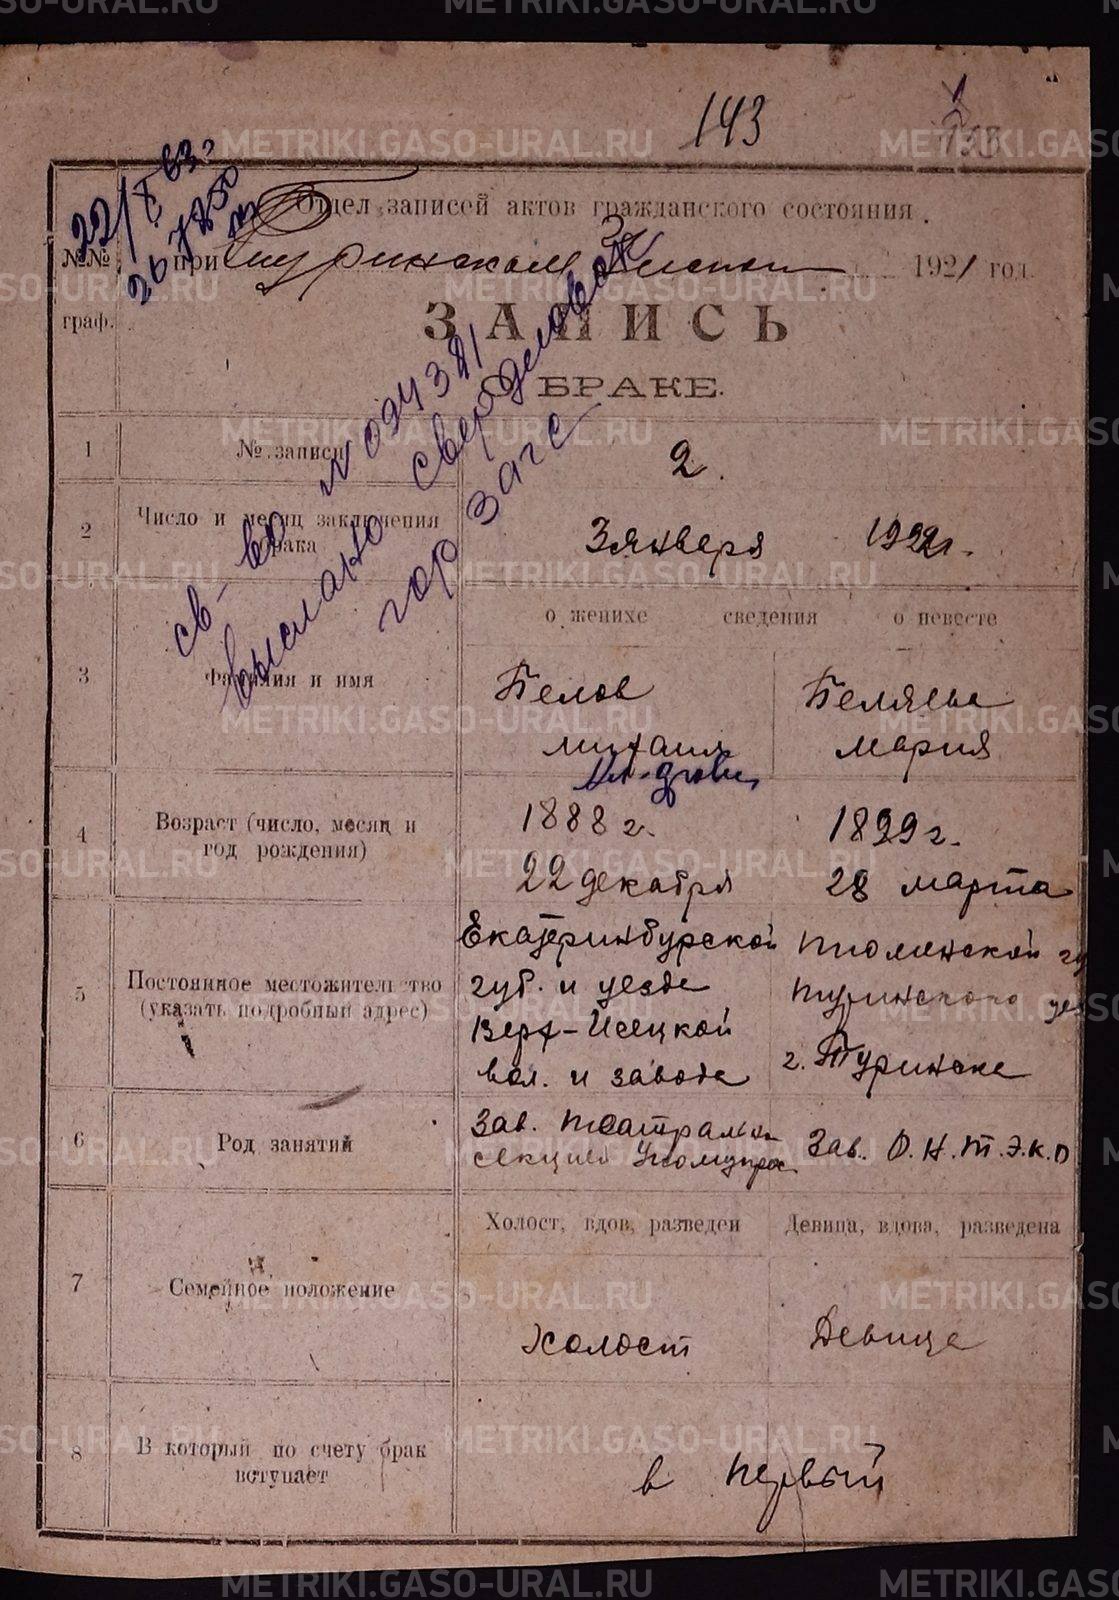 143
Отдел записей актов гражданского состояния.
№№ граф.
при Туринском 1921 год.
ЗАПИСЬ
О БРАКЕ.
22/X 63г
св-во № 094381
выслано свердловск
гор загс
1 № записи 2.
2 Число и месяц заключения брака 3 января 1922г.
о женихе сведения о невесте
3 Фамилия и имя
Белов Беляева
Михаил Мария
4 Возраст (число, месяц и год рождения)
1888 г. 1899 г.
22 декабря 28 марта
5 Постоянное местожительство (указать подробный адрес)
Екатеринбурской Тюменской
губ. и уезде Туринского
Верх-Исецкой г. Туринске
вол. и заводе
6 Род занятий
Зав. Театральн Зав. О.Н.Т.Э.К.О
секцией
Холост, вдов, разведен Девица, вдова, разведена
7 Семейное положение
Холост Девица
8 В который по счету брак вступает
в первый
METRIKI.GASO-URAL.RU